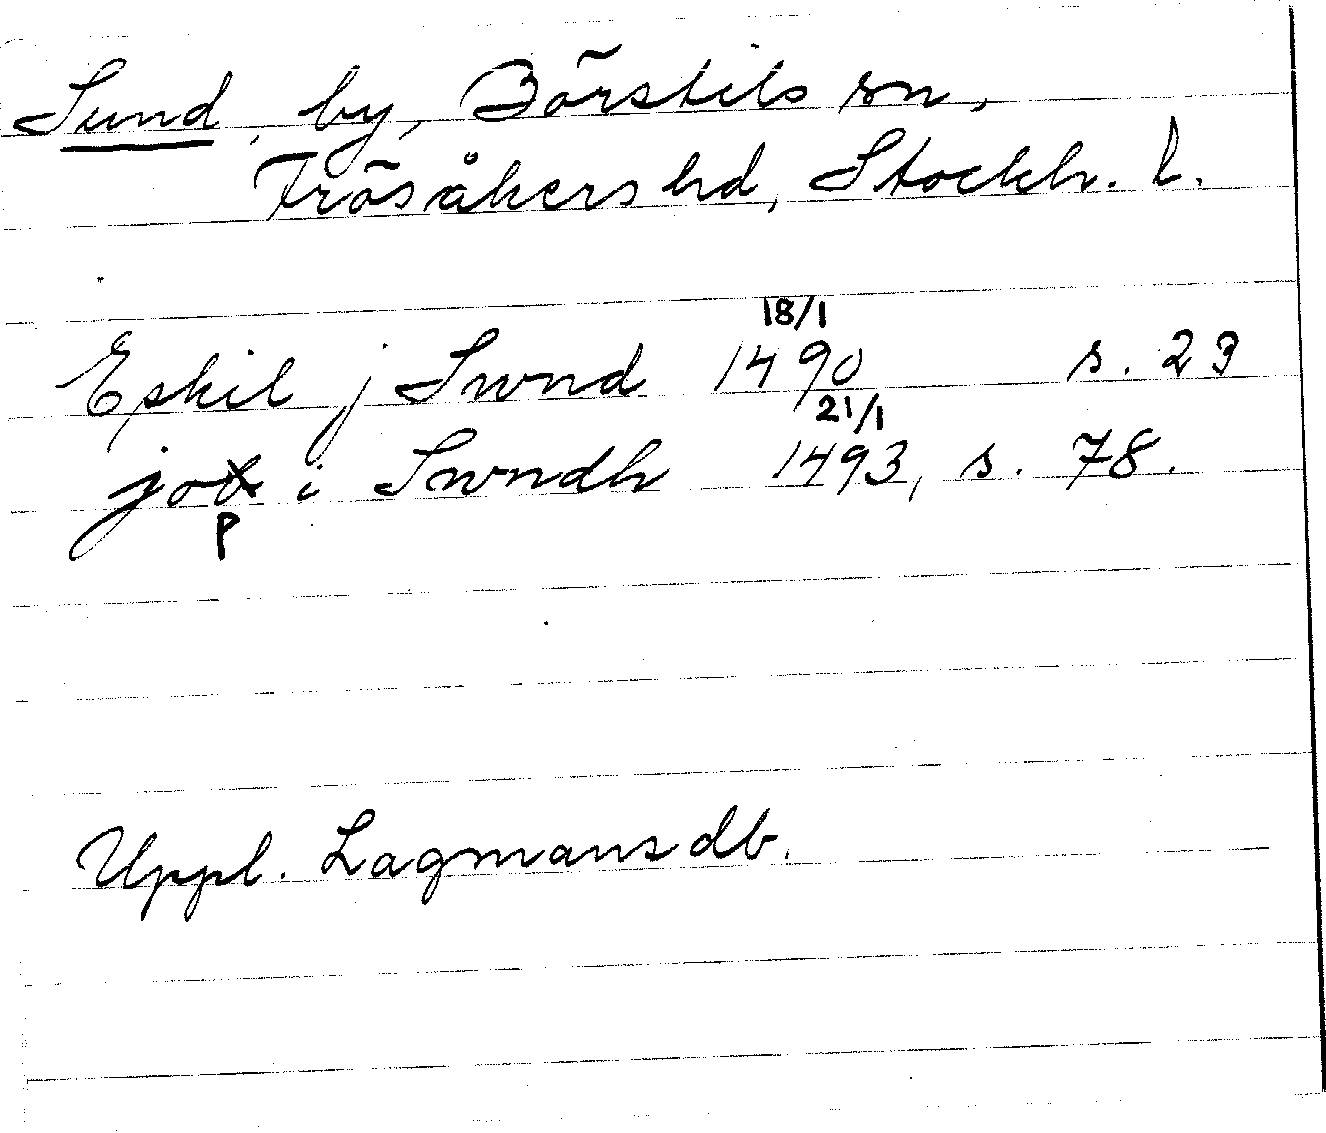 Sund, by, Börstils sn,
Frösåkers hd, Stockh. l.
18/1
Eskil j Swnd 1490 s. 23
21/1
job i Swndh 1493, s. 78.
p
Uppl. Lagmansdb.